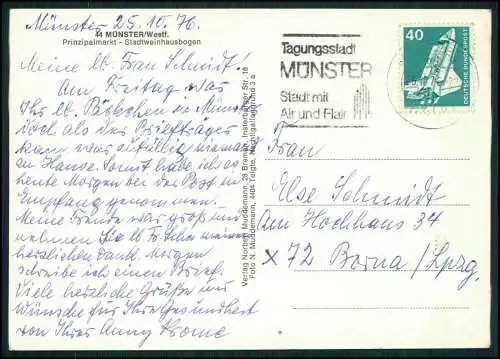 Münster 25.10.76.
44 MÜNSTER/Westf.
Prinzipalmarkt - Stadtweinhausbogen
Meine lb. Frau Schmidt!
Am Freitag war
Ihr lb. Päckchen in Münster
doch als der Briefträger
kam war zufällig niemand
zu Hause. Somit habe ich es
heute Morgen bei der Post in
Empfang genommen.
Meine Freude war groß und
nehmen Sie lb. Fr. Schm. meinen
herzlichen Dank. Morgen
schreibe ich einen Brief.
Viele herzliche Grüße und
Wünsche für Ihre Gesundheit
von Ihrer Anny
Verlag Norbert Muddemann, 28 Bremen, Insterburger Str. 18
Foto: N. Muddemann, 4404 Telgte,
Tagungsstadt
MÜNSTER
Stadt mit
Air und Flair
40
DEUTSCHE BUNDESPOST
Frau
Else Schmidt
Am Hochhaus 34
x 72 Borna /Lpzg.